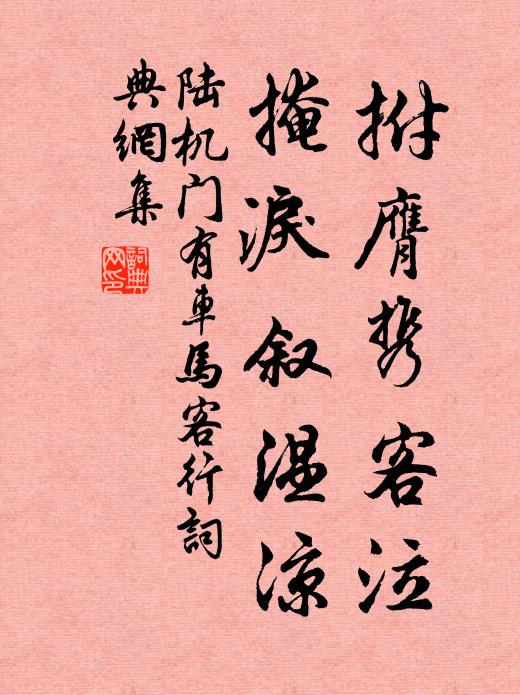 拊膺携客泣
掩淚叙温凉
陆机门有車馬客行詞
典網集
詞典
网印